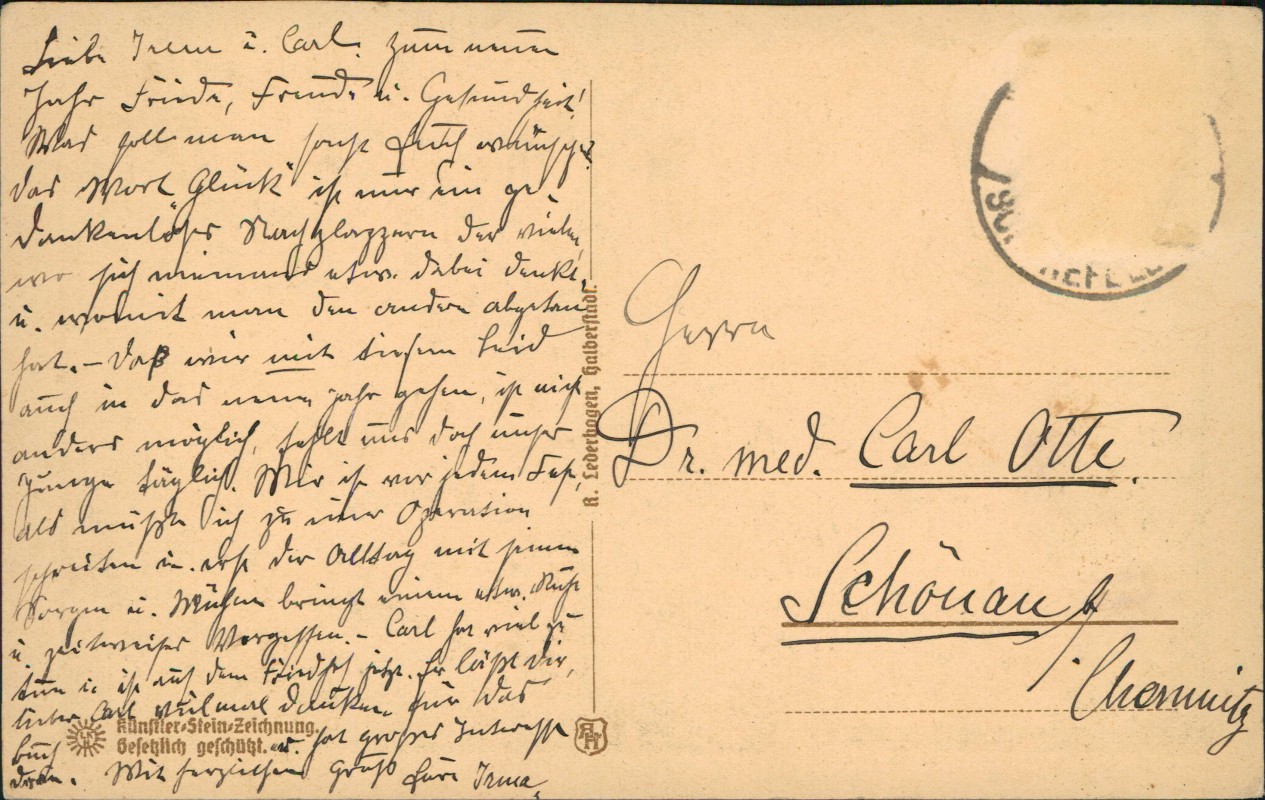 Liebe Irene u. Carl. Zum neuen
Jahr Friede, Freude u. Gesundheit!
Was soll man sonst Euch wünschen?
das Wort „Glück" ist nur ein ge-
dankenloses Nachplappern der vielen,
wo sich niemand etw. dabei denkt,
u. womit man den andern abgetan
hat. – Daß wir mit diesem Leid
auch in das neue Jahr gehen, ist nicht
anders möglich, fehlt uns doch unser
Junge täglich. Mir ist vor jedem Fest,
als müßte ich zu einer Operation
schreiten u. erst der Alltag mit seinen
Sorgen u. Mühen bringt einem etw. Ruhe
u. zeitweises Vergessen. – Carl hat viel zu
tun u. ist auf dem Friedhof jetzt. Er läßt Dir,
lieber Carl vielmal danken für das
Buch u. hat großes Interesse
dran. Mit herzlichem Gruß Eure Irma.
Künstler-Stein-Zeichnung.
Gesetzlich geschützt.
R. Lederbogen, Halberstadt.
Herrn
Dr. med. Carl Otte.
Schönau b/
Chemnitz